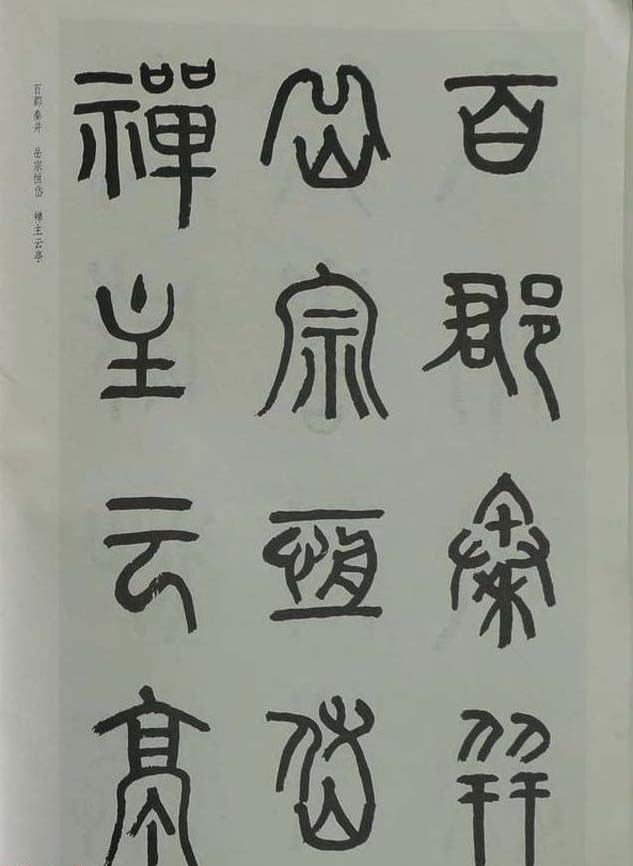 百郡秦并
岳宗恆岱
禪主云亭
百郡秦并 岳宗恒岱 禅主云亭